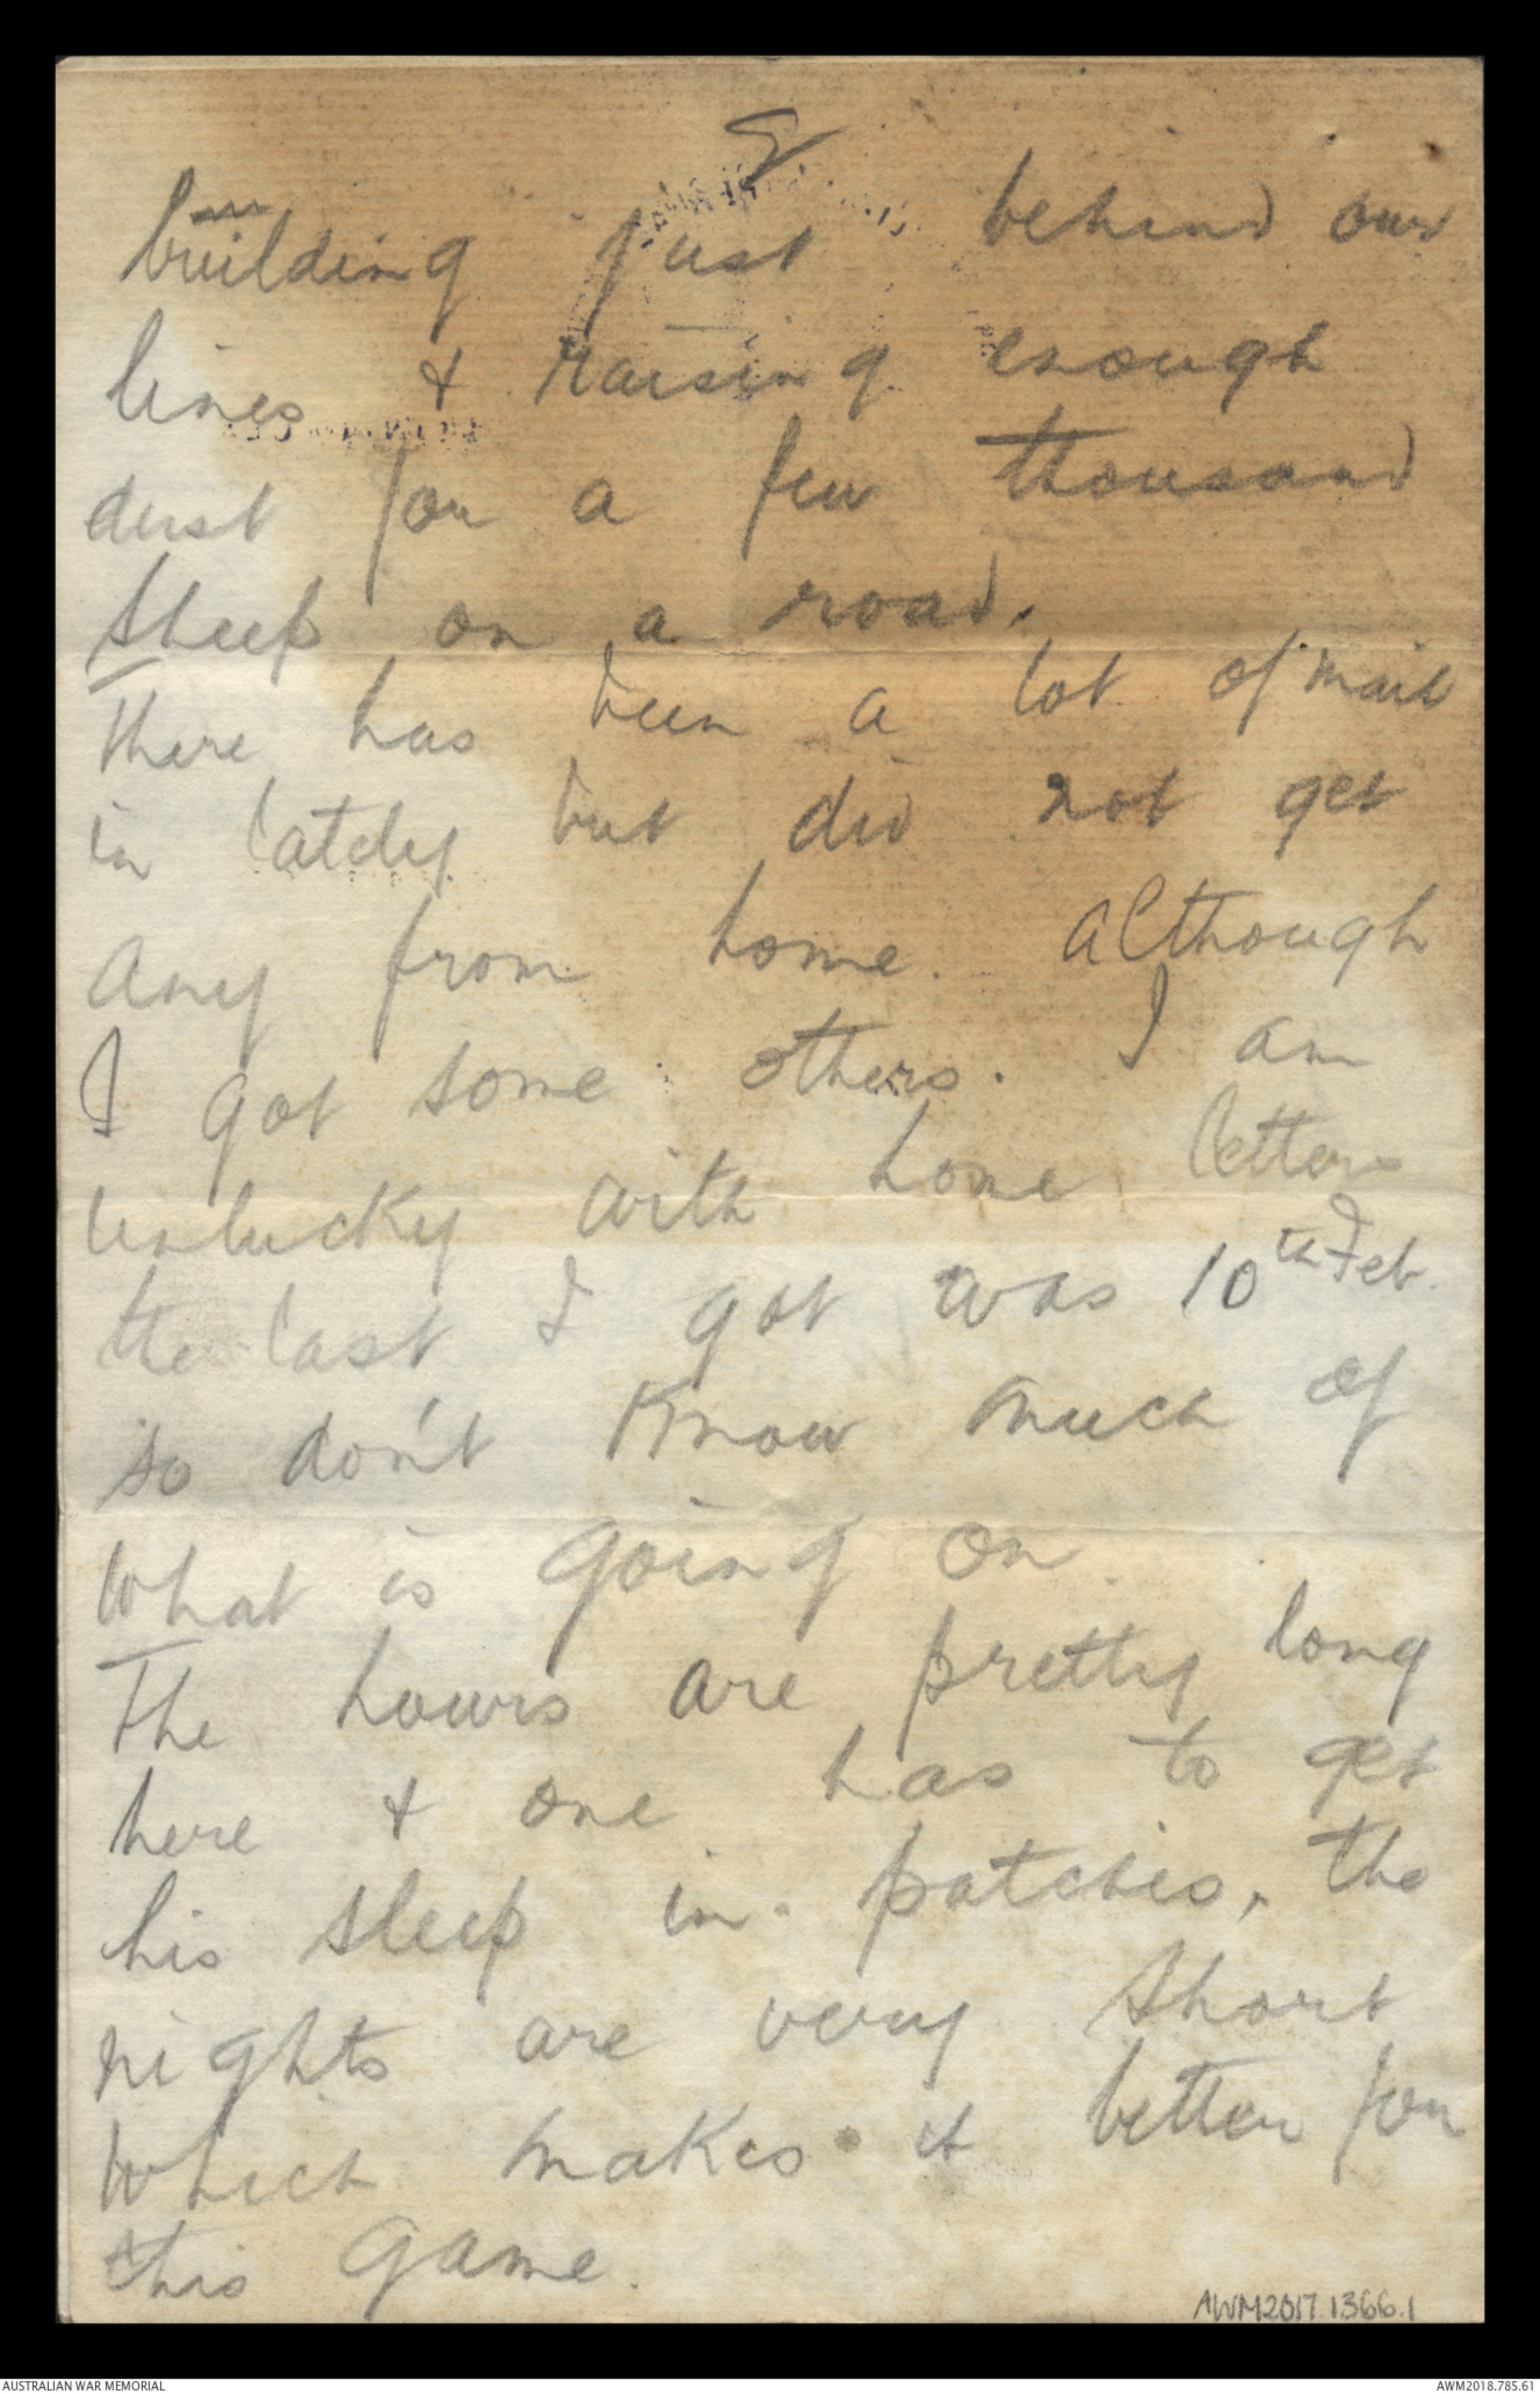 building just behind our
lines & raising enough
dust for a few thousand
sheep on a road.
There has been a lot of mail
in lately but did not get
any from home. although
I got some others. I am
unlucky with home letters
the last I got was 10th Feb.
so don't know much of
what is going on.
The hours are pretty long
here & one has to get
his sleep in patches, the
nights are very short
which makes it better for
this game.
AWM2017.1366.1
AUSTRALIAN WAR MEMORIAL
AWM2018.785.61